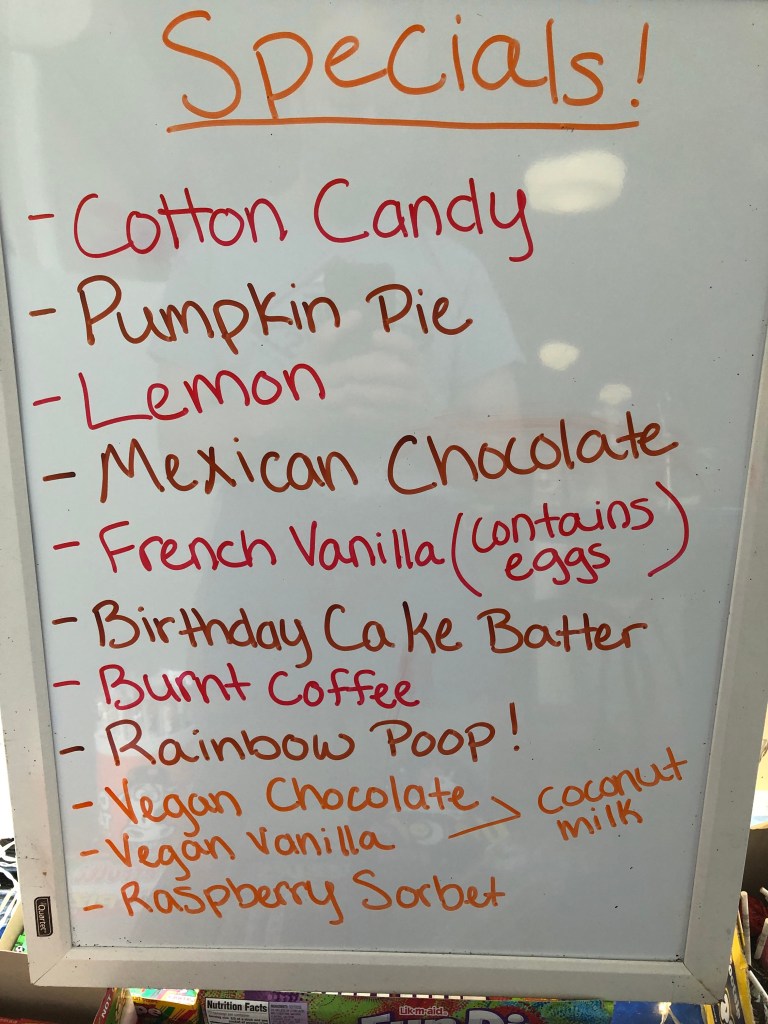 Specials!
- Cotton Candy
- Pumpkin Pie
- Lemon
- Mexican Chocolate
- French Vanilla (contains eggs)
- Birthday Cake Batter
- Burnt Coffee
- Rainbow Poop!
- Vegan Chocolate
- Vegan Vanilla
coconut
milk
- Raspberry Sorbet
Quartet
Nutrition Facts
Lik-m-aid